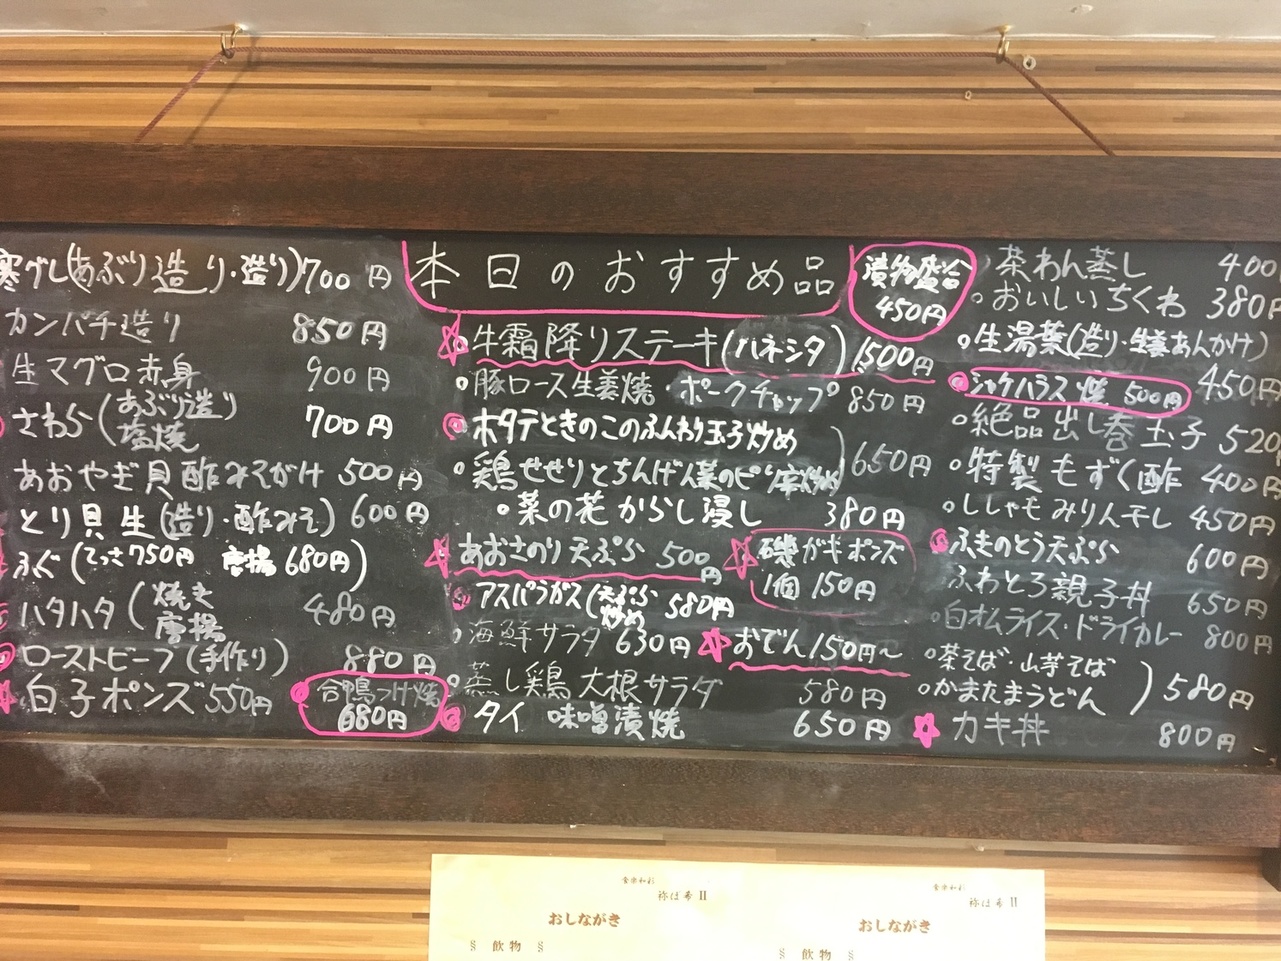 寒グレ(あぶり造り・造り)700円
カンパチ造り 850円
生マグロ赤身 900円
さわら(あぶり造り 塩焼 700円
あおやぎ貝酢みそがけ 500円
とり貝 生(造り・酢みそ) 600円
ふぐ(てっさ750円 唐揚680円)
ハタハタ(焼き 唐揚 480円
ローストビーフ(手作り) 880円
白子ポンズ 550円
合鴨つけ焼
680円
本日のおすすめ品
漬物盛合
450円
牛霜降りステーキ(ハネシタ) 1500円
豚ロース生姜焼・ポークチャップ 850円
ホタテときのこのふんわり玉子炒め
鶏せせりとちんげん菜のピリ辛炒め 650円
菜の花からし浸し 380円
あおさのり天ぷら 500円
磯ガキポンズ
1個 150円
アスパラガス(天ぷら 炒め 580円
海鮮サラダ 630円
おでん150円~
蒸し鶏大根サラダ 580円
タイ 味噌漬焼 650円
茶わん蒸し 400
おいしいちくわ 380円
生湯葉(造り・生姜あんかけ) 450円
シャケハラス焼 500円
絶品出し巻玉子 520
特製もずく酢 400円
ししゃもみりん干し 450円
ふきのとう天ぷら 600円
ふわとろ親子丼 650円
白オムライス・ドライカレー 800円
茶そば・山芋そば
かまたまうどん 580円
カキ丼 800円
祢ぼ寿 II
おしながき
§ 飲物 §
祢ぼ寿 II
おしながき
§ 飲物 §